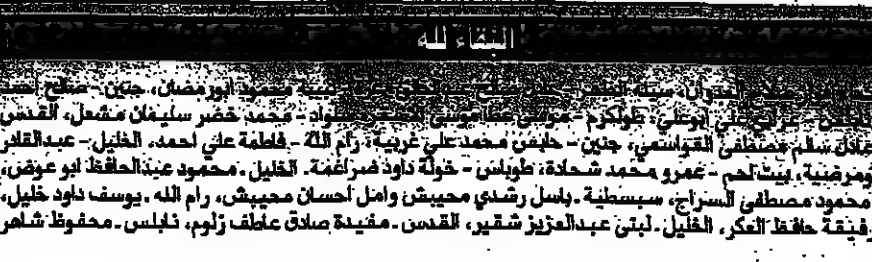 البقاء لله
صلاح العبوان، سيلة الظهر - علي صالح نبيهة محمود ابو رمضان، جنين - صالح احمد
علي ابو علي، طولكرم - موسى عطا موسى سلواد - محمد خضر سليمان مشعل، القدس
عادل سالم مصطفى القواسمي، جنين - حابس محمد علي غريبه، رام الله - فاطمة علي احمد، الخليل - عبدالقادر
ومرضية، بيت لحم - عمرو محمد شحادة، طوباس - خولة داود ضراغمة. الخليل. محمود عبدالحافظ ابو عوض،
محمود مصطفى السراج، سبسطية. باسل رشدي محيبش وامل احسان محيبش، رام الله. يوسف داود خليل،
رفيقة حافظ العكر، الخليل. لبنى عبدالعزيز شقير، القدس. مفيدة صادق عاطف زلوم، نابلس. محفوظ شاهر